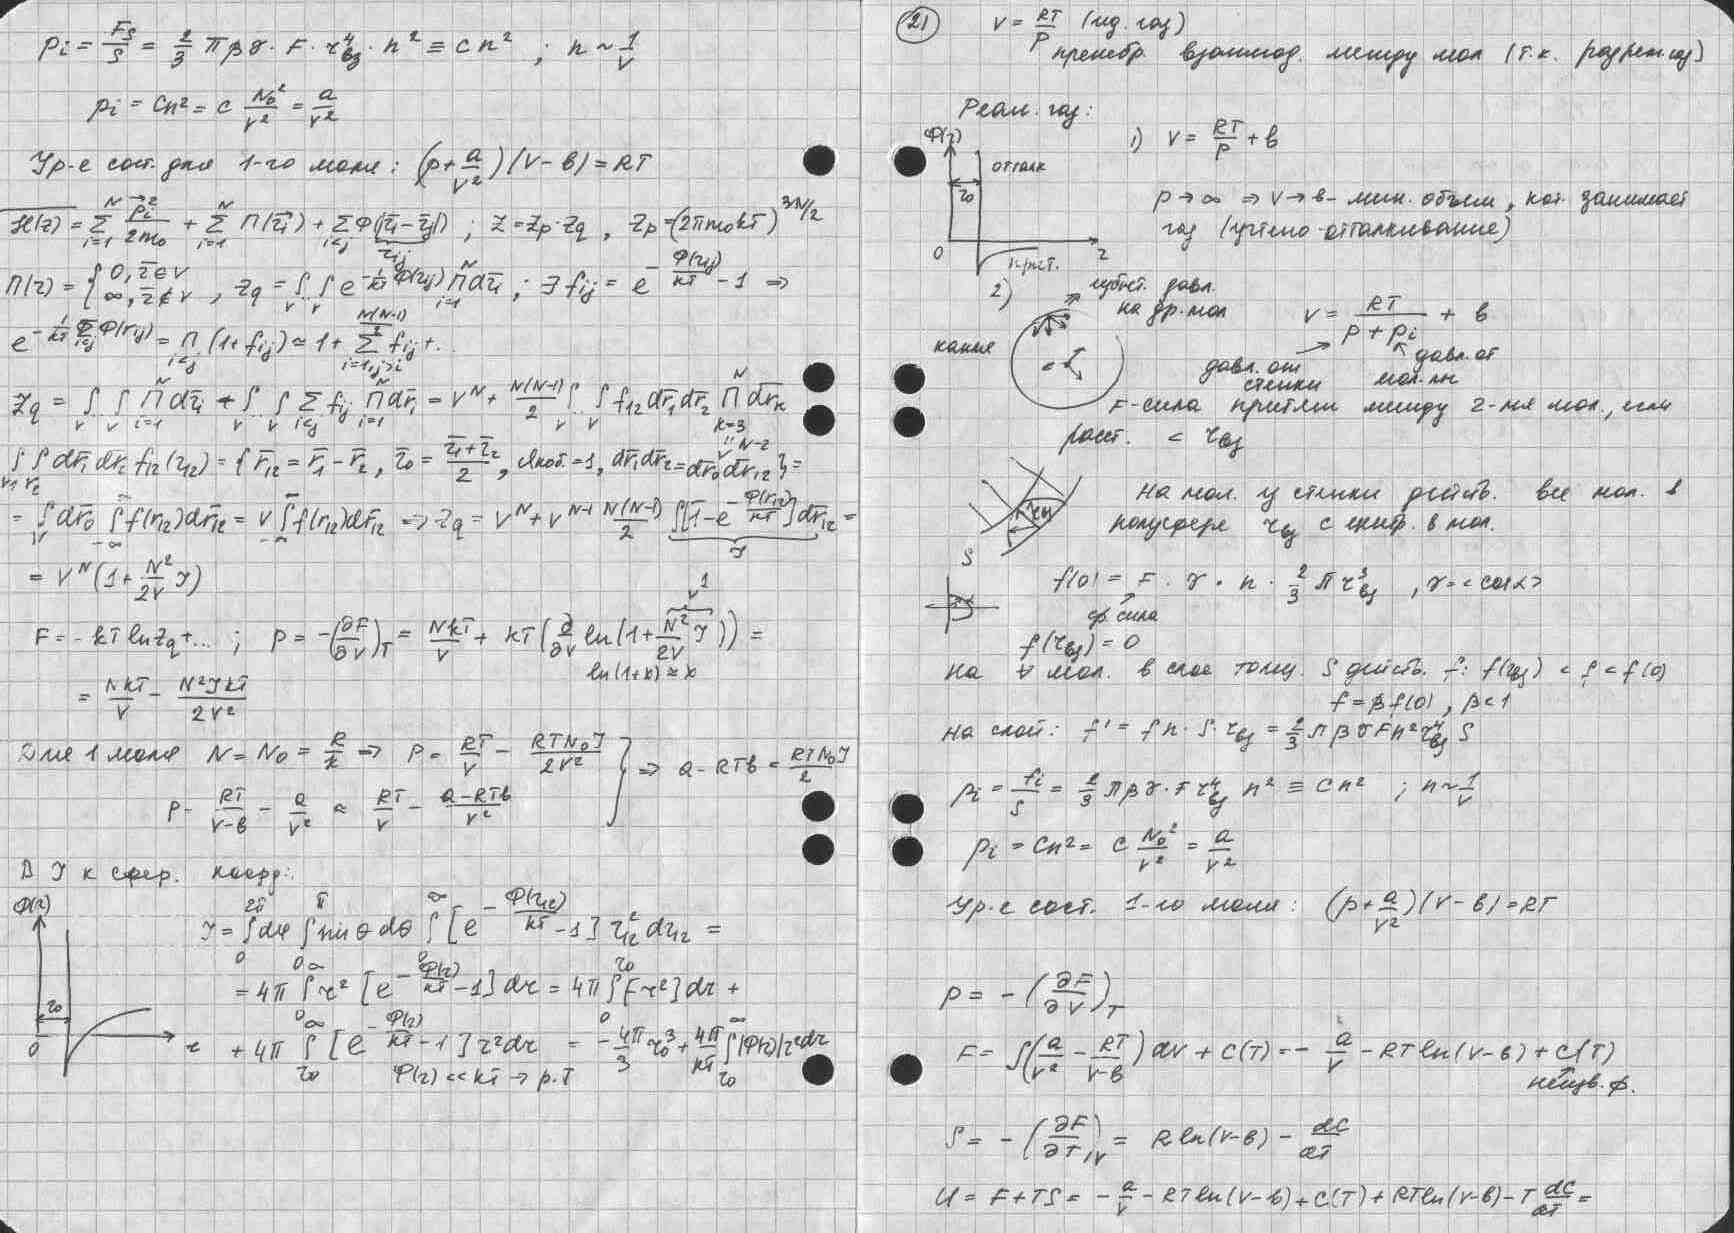 pi = Fs/S = 2/3 πβγ · F · r⁴вз · n² ≡ Cn² ; n ~ 1/V
pi = Cn² = C N₀²/V² = a/V²
Ур-е сост. для 1-го моля: (p + a/V²)(V − в) = RT
H(r) = Σ_{i=1}^{N} p⃗i²/2m₀ + Σ_{i=1}^{N} П(r̄i) + Σ_{i<j} Φ(|r̄i − r̄j|) ; Z = Zp · Zq , Zp = (2πm₀kT)^{3N/2}
rij
П(r) = { 0, r̄ ∈ V ; ∞, r̄ ∉ V , Zq = ∫..∫ e^{−1/kT Φ(rij)} Π_{i=1}^{N} dr̄i ; ∃ fij = e^{−Φ(rij)/kT} − 1 ⇒
e^{−1/kT Σ_{i<j} Φ(rij)} = Π_{i<j} (1 + fij) ≃ 1 + Σ_{i=1, j>i}^{N(N−1)/2} fij + ..
Zq = ∫..∫ Π_{i=1}^{N} dr̄i + ∫..∫ Σ_{i<j} fij Π_{i=1}^{N} dr̄i = V^N + N(N−1)/2 ∫..∫ f12 dr̄1 dr̄2 Π_{k=3}^{N} dr̄k
V^{N−2}
∫∫ dr̄1 dr̄2 f12(r12) = { r̄12 = r̄1 − r̄2 , r̄0 = (r̄1 + r̄2)/2 , Якоб. = 1, dr̄1 dr̄2 = dr̄0 dr̄12 } =
= ∫ dr̄0 ∫ f(r12) dr̄12 = V ∫ f(r12) dr̄12 ⇒ Zq = V^N + V^{N−1} N(N−1)/2 ∫ [1 − e^{−Φ(r12)/kT}] dr̄12 =
J
= V^N (1 + N²/2V J)
F = −kT ln Zq + ... ; p = −(∂F/∂V)_T = NkT/V + kT (∂/∂V ln(1 + N²/2V J)) =
ln(1+x) ≈ x
= NkT/V − N²JkT/2V²
Для 1 моля N = N₀ = R/k ⇒ p = RT/V − RTN₀J/2V²
⇒ a − RTв = RTN₀J/2
p = RT/(V−в) − a/V² ≈ RT/V − (a − RTв)/V²
В J к сфер. коорд:
Φ(r)
r₀
0
r
J = ∫₀^{2π} dφ ∫₀^{π} sinθ dθ ∫₀^{∞} [e^{−Φ(r12)/kT} − 1] r²12 dr12 =
= 4π ∫₀^{∞} r² [e^{−Φ(r)/kT} − 1] dr = 4π ∫₀^{r₀} [−r²] dr +
+ 4π ∫_{r₀}^{∞} [e^{−Φ(r)/kT} − 1] r² dr = −4π/3 r₀³ + 4π/kT ∫_{r₀}^{∞} |Φ(r)| r² dr
Φ(r) << kT → р.Т
21
V = RT/p (ид. газ)
пренебр. взаимод. между мол (т.к. разреж. газ)
Реал. газ:
Φ(r)
отталк
r₀
0
r
прит.
1) V = RT/p + в
p → ∞ ⇒ V → в – мин. объем, кот. занимает
газ (учтено отталкивание)
2)
действ. давл.
на др. мол
V = RT/(p + pi) + в
давл. от
стенки
давл. от
F – сила притяж между 2-мя мол., если
расст. < rвз
rвз
На мол. у стенки действ. все мол. в
полусфере rвз с центр. в мол.
S
f(0) = F · γ · n · 2/3 πr³вз , γ = <cosα>
ср. сила
f(rвз) = 0
На ∀ мол. в слое толщ. S действ. f: f(rвз) < f < f(0)
f = βf(0) , β < 1
На слой: f' = fn · S · rвз = 2/3 πβγFn²r⁴вз S
pi = fi/S = 2/3 πβγ · F r⁴вз n² ≡ Cn² ; n ~ 1/V
pi = Cn² = C N₀²/V² = a/V²
Ур-е сост. 1-го моля: (p + a/V²)(V − в) = RT
p = −(∂F/∂V)_T
F = ∫(a/V² − RT/(V−в)) dV + C(T) = −a/V − RT ln(V−в) + C(T)
неизв. ф.
S = −(∂F/∂T)_V = R ln(V−в) − dC/dT
U = F + TS = −a/V − RT ln(V−в) + C(T) + RT ln(V−в) − T dC/dT =